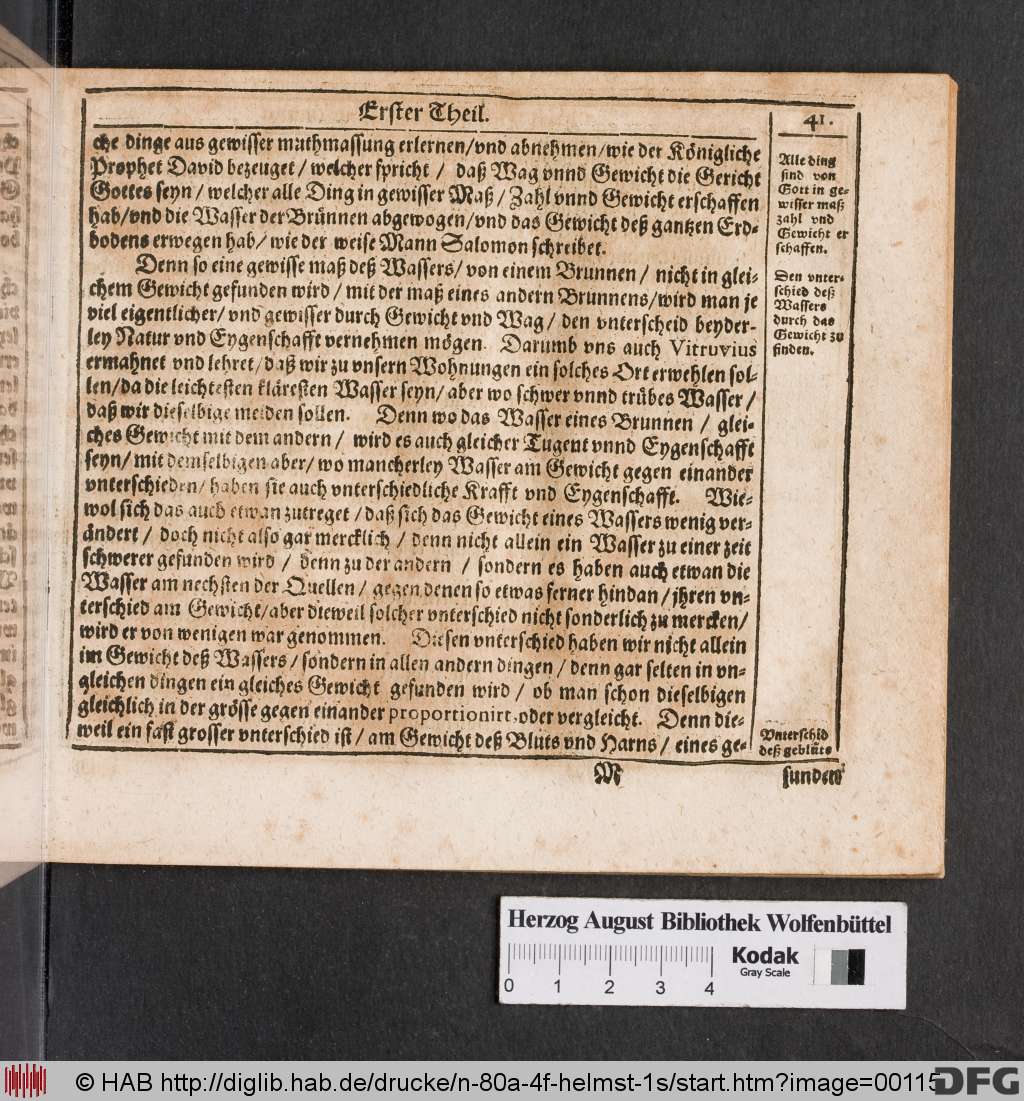 Erster Theil.
41.
che dinge aus gewisser muthmassung erlernen/vnd abnehmen/wie der Königliche
Prophet David bezeuget/ welcher spricht / daß Wag vnnd Gewicht die Gericht
Gottes seyn/ welcher alle Ding in gewisser Maß/ Zahl vnnd Gewicht erschaffen
hab/vnd die Wasser der Brünnen abgewogen/vnd das Gewicht deß gantzen Erd⸗
bodens erwegen hab/ wie der weise Mann Salomon schreibet.
Denn so eine gewisse maß deß Wassers/ von einem Brunnen / nicht in glei⸗
chem Gewicht gefunden wird/ mit der maß eines andern Brunnens/wird man je
viel eigentlicher/ vnd gewisser durch Gewicht vnd Wag/ den vnterscheid beyder⸗
ley Natur vnd Eygenschafft vernehmen mögen. Darumb vns auch Vitruvius
ermahnet vnd lehret/daß wir zu vnsern Wohnungen ein solches Ort erwehlen sol⸗
len/da die leichtesten kläresten Wasser seyn/ aber wo schwer vnnd trübes Wasser/
daß wir dieselbige meiden sollen. Denn wo das Wasser eines Brunnen / glei⸗
ches Gewicht mit dem andern/ wird es auch gleicher Tugent vnnd Eygenschafft
seyn/ mit demselbigen aber/ wo mancherley Wasser am Gewicht gegen einander
vnterschieden/ haben sie auch vnterschiedliche Krafft vnd Eygenschafft. Wie⸗
wol sich das auch etwan zutreget/ daß sich das Gewicht eines Wassers wenig ver⸗
ändert/ doch nicht also gar mercklich/ denn nicht allein ein Wasser zu einer zeit
schwerer gefunden wird / denn zu der andern / sondern es haben auch etwan die
Wasser am nechsten der Quellen/ gegen denen so etwas ferner hindan/ jhren vn⸗
terschied am Gewicht/aber dieweil solcher vnterschied nicht sonderlich zu mercken/
wird er von wenigen war genommen. Diesen vnterschied haben wir nicht allein
im Gewicht deß Wassers/ sondern in allen andern dingen/ denn gar selten in vn⸗
gleichen dingen ein gleiches Gewicht gefunden wird/ ob man schon dieselbigen
gleichlich in der grösse gegen einander proportionirt, oder vergleicht. Denn die⸗
weil ein fast grosser vnterschied ist/ am Gewicht deß Bluts vnd Harns/ eines ge⸗
Alle ding
sind von
Gott in ge⸗
wisser maß
zahl vnd
Gewicht er
schaffen.
Den vnter⸗
schied deß
Wassers
durch das
Gewicht zu
finden.
Vnterschid
deß geblüts
M
sunden
Herzog August Bibliothek Wolfenbüttel
0 1 2 3 4
Kodak
Gray Scale
© HAB http://diglib.hab.de/drucke/n-80a-4f-helmst-1s/start.htm?image=00115
DFG